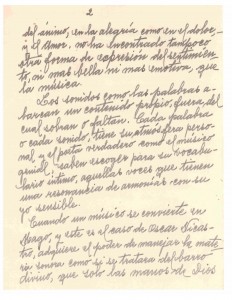 2
del ánimo, en la alegría como en el dolor,
y el Amor, no ha encontrado tampoco
otra forma de expresión del sentimien-
to, ni mas bella ni mas emotiva, que
la música.
Los sonidos como las palabras a-
barcan un contenido propio, fuera del
cual sobran o faltan. Cada palabra
o cada sonido, tiene su atmósfera perso-
nal, y el poeta verdadero como el músico
genial, saben escoger para su vocabu-
lario íntimo, aquellas voces que tienen
una resonancia de armonías con su
yo sensible.
Cuando un músico se convierte en
Mago, y este es el caso de Oscar Nicas-
tro, adquiere el poder de manejar la mate-
ria sonora como si se tratara del barro
divino, que solo las manos de Dios